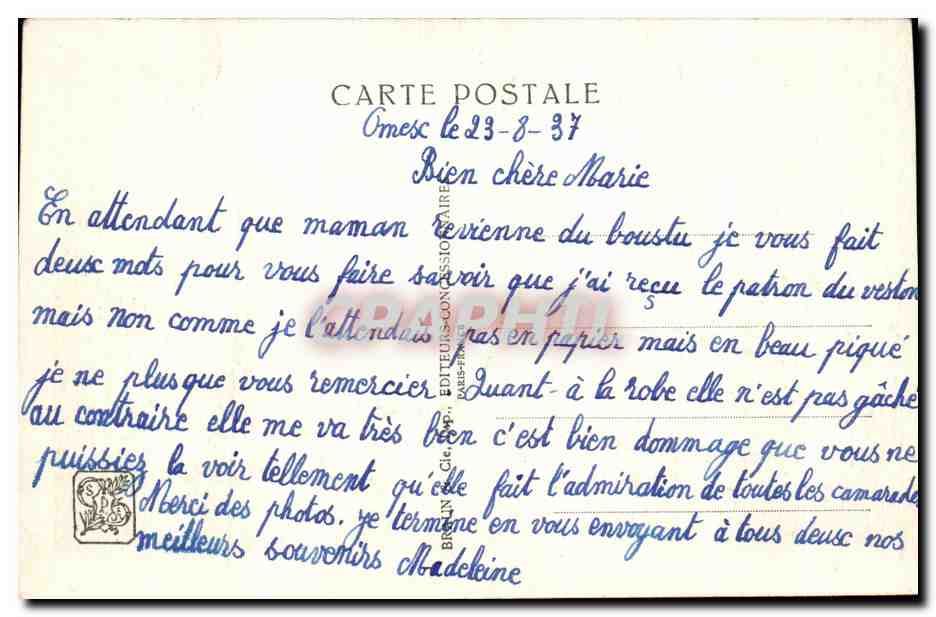 CARTE POSTALE
Omex le 23-8-37
Bien chère Marie
En attendant que maman revienne du boustu je vous fait
deux mots pour vous faire savoir que j'ai reçu le patron du veston
mais non comme je l'attendais pas en papier mais en beau piqué
je ne plus que vous remercier. Quant-à la robe elle n'est pas gâché
au contraire elle me va très bien c'est bien dommage que vous ne
puissiez la voir tellement qu'elle fait l'admiration de toutes les camarades
Merci des photos. je termine en vous envoyant à tous deux nos
meilleurs souvenirs Madeleine
BRAUN & Cie, Imp., EDITEURS-CONCESSIONNAIRES
PARIS-FRANCE
CPAPHIL